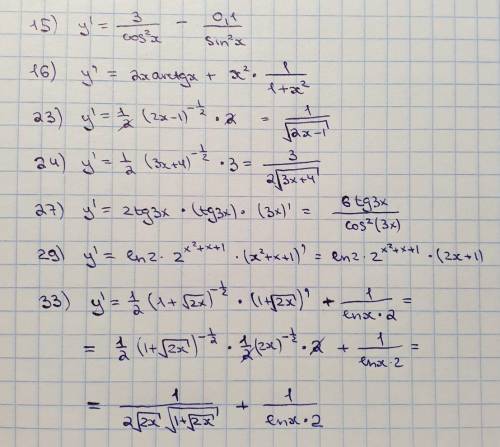 15) y' = 3/cos²x − 0,1/sin²x
16) y' = 2x arctgx + x² · 1/(1+x²)
23) y' = 1/2 (2x−1)^(−1/2) · 2 = 1/√(2x−1)
24) y' = 1/2 (3x+4)^(−1/2) · 3 = 3/(2√(3x+4))
27) y' = 2tg3x · (tg3x) · (3x)' = 6tg3x/cos²(3x)
29) y' = ln2 · 2^(x²+x+1) · (x²+x+1)' = ln2 · 2^(x²+x+1) · (2x+1)
33) y' = 1/2 (1+√2x)^(−1/2) · (1+√2x)' + 1/(lnx·2) =
= 1/2 (1+√2x)^(−1/2) · 1/2 (2x)^(−1/2) · 2 + 1/(lnx·2) =
= 1/(2√2x √(1+√2x)) + 1/(lnx·2)